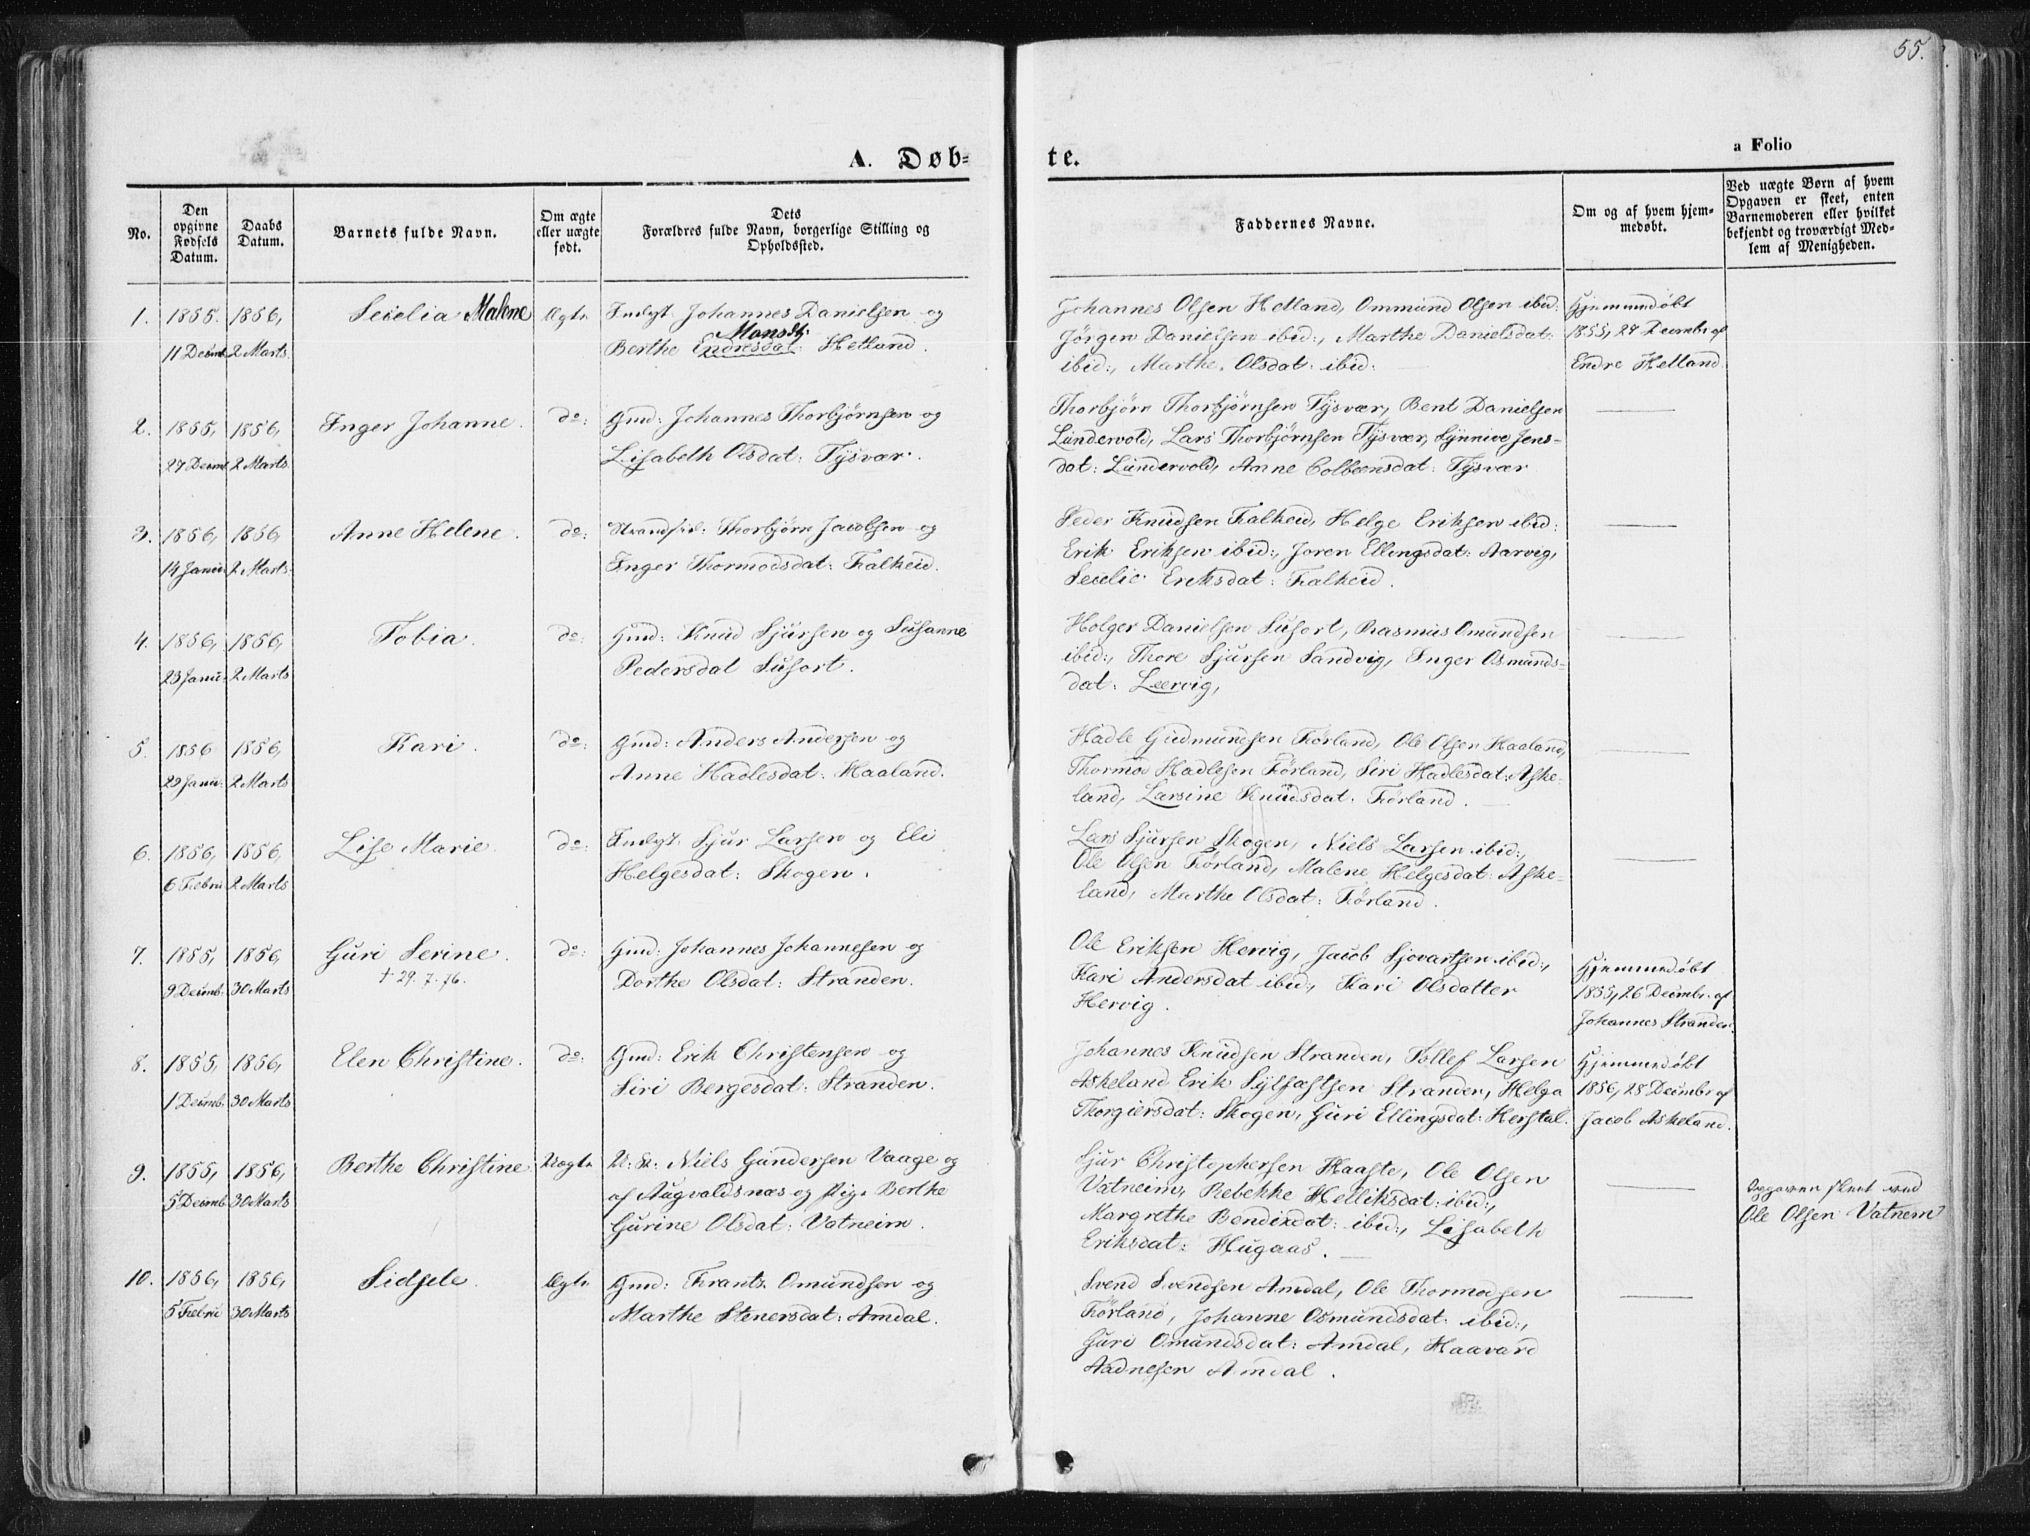 55.
A. Døb=
te.
a Folio
No.
Den opgivne Fødsels Datum.
Daabs Datum.
Barnets fulde Navn.
Om ægte eller uægte født.
Dets Forældres fulde Navn, borgerlige Stilling og Opholdssted.
Faddernes Navne.
Om og af hvem hjemmedøbt.
Ved uægte Børn af hvem Opgaven er skeet, enten Barnemoderen eller hvilket bekjendt og troværdigt Medlem af Menigheden.
1. 1855. 1856, Seselia Malene Ægte Johannes Danielsen og
11 Decmb 2 Marts Berthe Endresdat: Monsdt: Hetland.
Johannes Olsen Hetland, Ommund Olsen ibid:
Jørgen Danielsen ibid:, Marthe Danielsdat:
ibid:, Marthe Olsdat: ibid:
Hjemmedøbt
1855, 27 Decembr af
Endre Hetland
2. 1855, 1856, Inger Johanne. do: Gmd: Johannes Thorbjørnsen og
27 Decmb 2 Marts Lisabeth Olsdat: Tysvær.
Thorbjørn Thorbjørnsen Tysvær, Bent Danielsen
Lundervold, Lars Thorbjørnsen Tysvær, Synnive Jens-
dat: Lundervold, Anne Colbeensdat: Tysvær
3. 1856, 1856, Anne Helene. do: Strandsid: Thorbjørn Jacobsen og
14 Janu: 2 Marts Inger Thormodsdat: Falkeid.
Peder Knudsen Falkeid, Helge Eriksen ibid:
Erik Eriksen ibid:, Joren Ellingsdat: Aarvig,
Seselie Eriksdat: Falkeid.
4. 1856, 1856, Tobia. do: Gmd: Knud Sjursen og Susanne
23 Janu: 2 Marts Pedersdat Susort.
Holger Danielsen Susort, Rasmus Omundsen
ibid:, Thore Sjursen Sandvig, Inger Osmunds-
dat: Leervig,
5. 1856 1856, Kari. do: Gmd: Anders Andersen og
29 Janu: 2 Marts Anne Hadlesdat: Haaland.
Hadle Gudmundsen Førland, Ole Olsen Haaland,
Thormod Hadlesen Førland, Siri Hadlesdat: Aske-
land, Larsine Knudsdat: Førland.
6. 1856, 1856, Lise Marie. do: Sjur Larsen og Eli
6 Febru 2 Marts Helgesdat: Skogen.
Lars Sjursen Skogen, Niels Larsen ibid:,
Ole Olsen Førland, Malene Helgesdat: Aske-
land, Marthe Olsdat: Førland.
7. 1855, 1856, Guri Serine. do: Gmd: Johannes Johannesen og
9 Decmb: 30 Marts † 29. 7. 76. Dorthe Olsdat: Stranden.
Ole Eriksen Hervig, Jacob Sjovartsen ibid:,
Kari Andersdat ibid:, Kari Olsdatter
Hervig.
Hjemmedøbt
1855, 26 Decmbr. af
Johannes Stranden.
8. 1855, 1856, Elen Christine. do: Gmd: Erik Christensen og
1 Decmb: 30 Marts Siri Bergesdat: Stranden.
Johannes Knudsen Stranden, Tollef Larsen
Askeland Erik Stranden, Helga
Thorgiersdat: Skogen, Guri Ellingsdat: Herstal.
Hjemmedøbt
1856, 28 Decmbr af
Jacob Askeland.
9. 1855, 1856, Berthe Christine Uægte Niels Gundersen Vaage og
5 Decmb 30 Marts af Augvaldsnæs og Pige Berthe
Gurine Olsdat: Vatneim.
Sjur Christophersen Haaste, Ole Olsen
Vatneim, Rebekke Helliksdat: ibid:,
Margrethe Bendixdat: ibid:, Lisabeth
Eriksdat: Hugaas.
Opgaven skeet ved
Ole Olsen Vatnem
10. 1856, 1856, Sidsele. Ægte Gmd: Frantz Omundsen og
5 Febru 30 Marts Marthe Stenersdat: Amdal.
Svend Svendsen Amdal, Ole Thormodsen
Førland, Johanne Osmundsdat: ibid:,
Guro Omundsdat: Amdal, Haavard
Aadnesen Amdal.